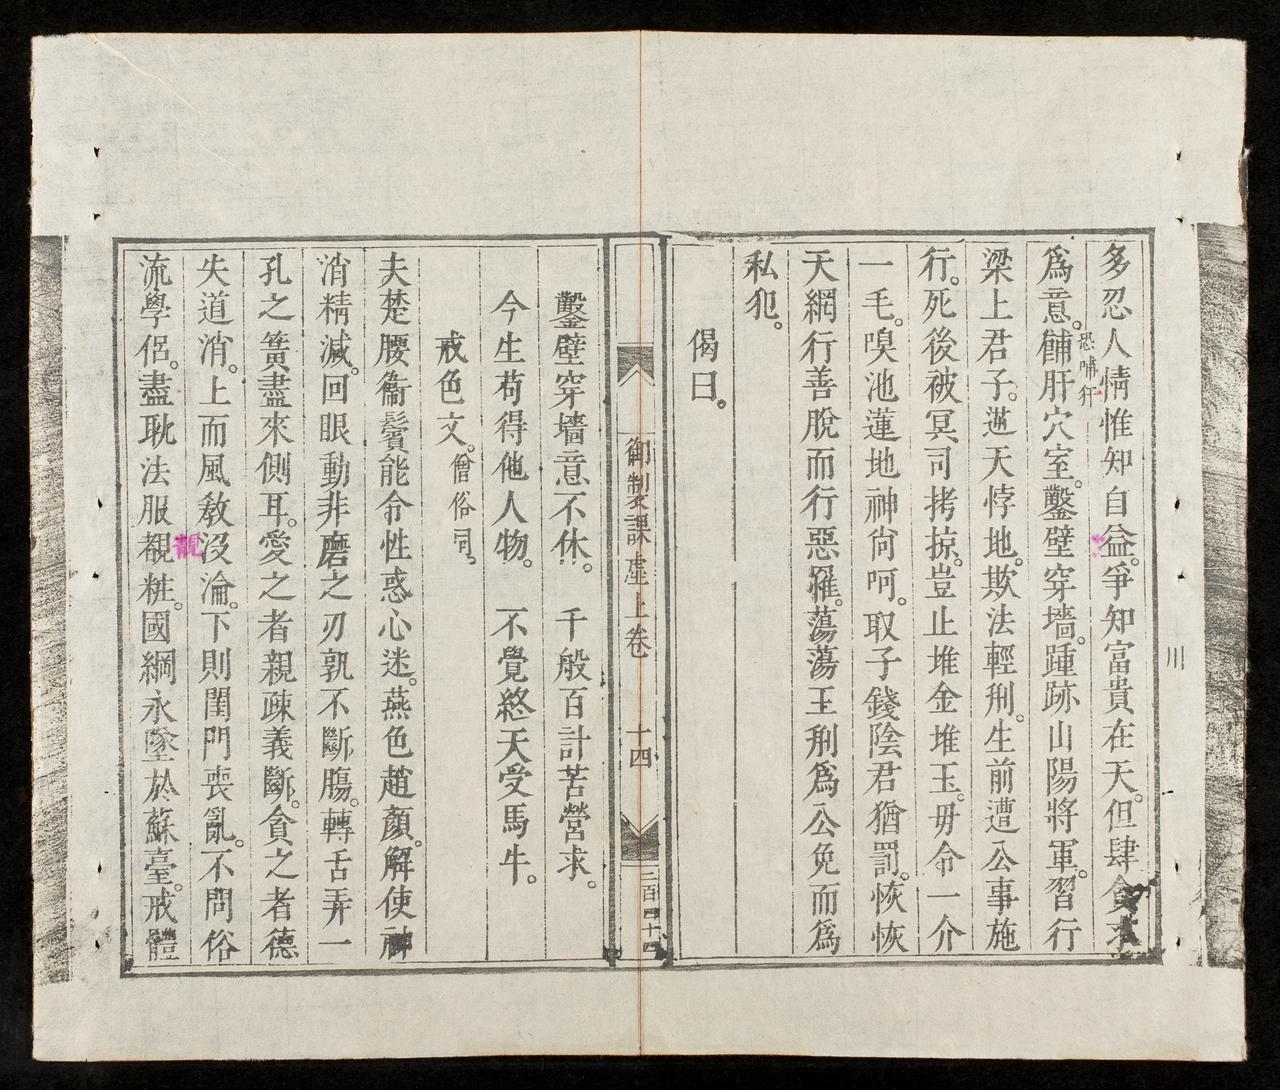 多忍人情惟知自益。爭知富貴在天。但肆貪求
為意。餔肝穴室。鑿壁穿墻。踵跡山陽將軍。習行
恐哺犴
梁上君子。遞天悖地。欺法輕刑。生前遭公事施
行。死後被冥司拷掠。豈止堆金堆玉。毋令一介
一毛。嗅池蓮地神尙呵。取子錢陰君猶罰。恢恢
天網行善脫而行惡罹。蕩蕩王刑爲公免而爲
私犯。
偈曰。
御製課虛上卷 十四
二百四十四
鑿壁穿墻意不休。 千般百計苦營求。
今生苟得他人物。 不覺終天受馬牛。
戒色文。僧俗同。
夫楚腰衞鬢能令性惑心迷。燕色趙顏。解使神
消精減。回眼動非磨之刃孰不斷膓。轉舌弄一
孔之簧盡來側耳。愛之者親疎義斷。貪之者德
失道消。上而風敎没淪。下則閨門喪亂。不問俗
流學侶。盡耽法服靚粧。國綱永墜於蘇臺。戒體
靚